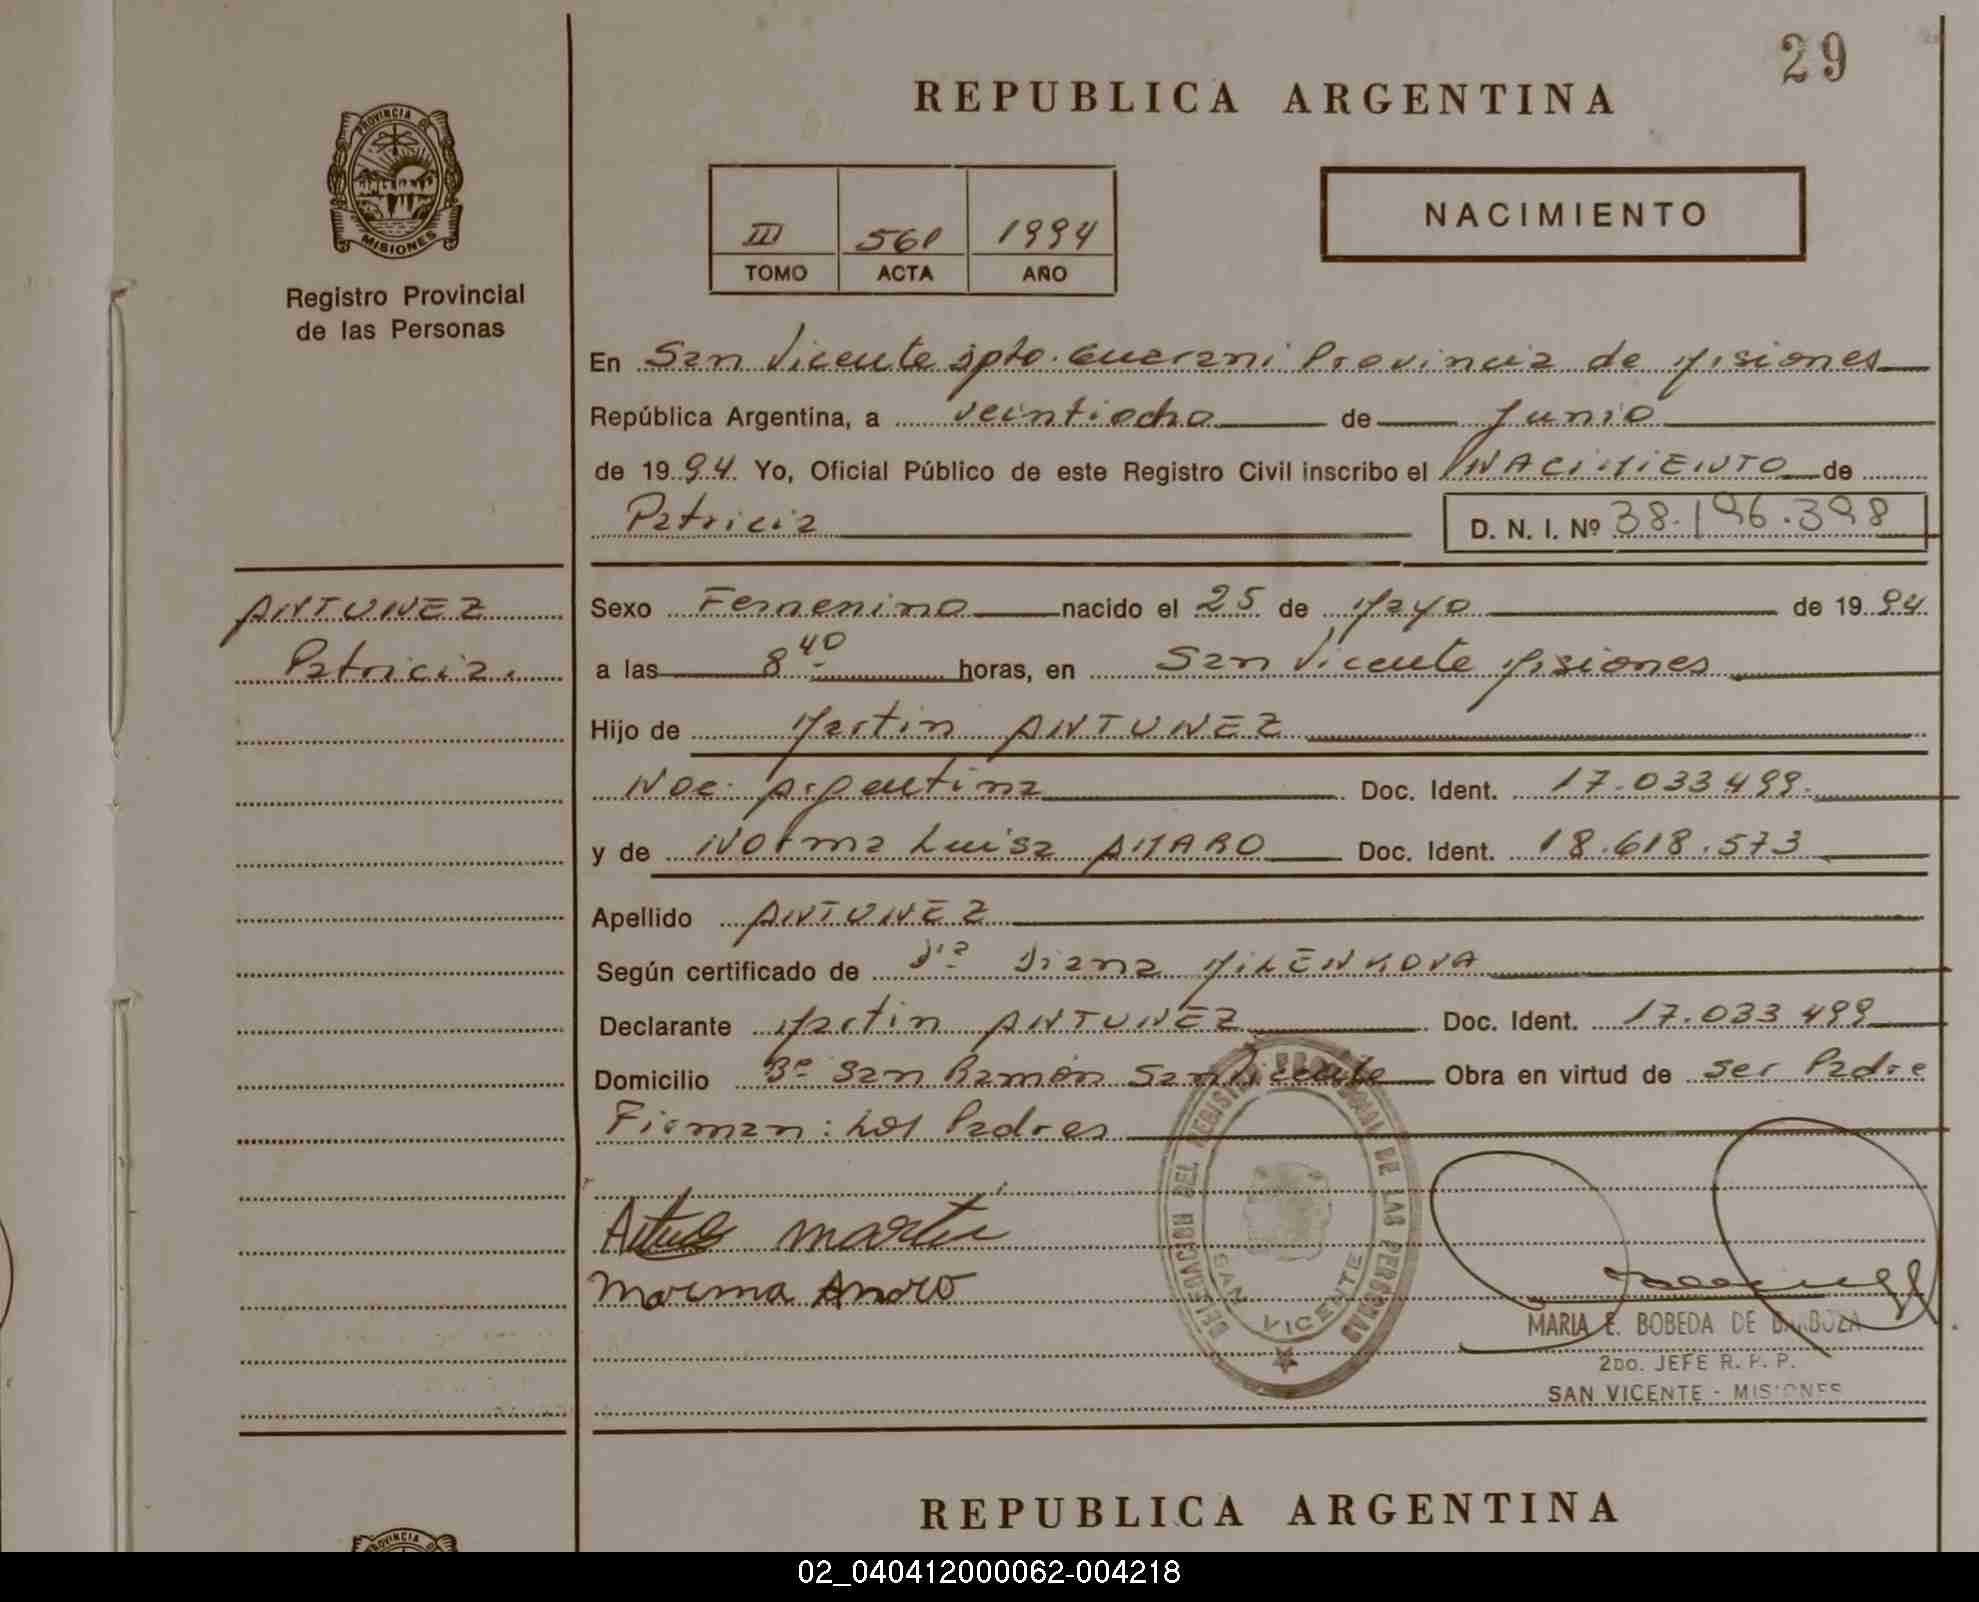 29
REPUBLICA ARGENTINA
PROVINCIA DE
MISIONES
Registro Provincial
de las Personas
III 561 1994
TOMO ACTA AÑO
NACIMIENTO
En San Vicente Dpto. Guarani Provincia de Misiones
República Argentina, a veintiocho de Junio
de 1994. Yo, Oficial Público de este Registro Civil inscribo el NACIMIENTO de
Patricia D. N. I. Nº 38.196.398
ANTUNEZ
Patricia.
Sexo Femenino nacido el 25 de Mayo de 1994
a las 8 40 horas, en San Vicente Misiones
Hijo de Martin ANTUNEZ
Nac. Argentina Doc. Ident. 17.033.499.
y de Norma Luisa AMARO Doc. Ident. 18.618.573
Apellido ANTUNEZ
Según certificado de Dra Diana MILENKOVA
Declarante Martin ANTUNEZ Doc. Ident. 17.033 499
Domicilio Bº San Ramón San Vicente Obra en virtud de ser Padre
Firman: Los Padres
martin
DELEGACION DEL REGISTRO PROVINCIAL DE LAS PERSONAS
SAN VICENTE
MARIA E. BOBEDA DE BARBOZA
2DO. JEFE R. P. P.
SAN VICENTE - MISIONES
REPUBLICA ARGENTINA
PROVINCIA DE
02_040412000062-004218